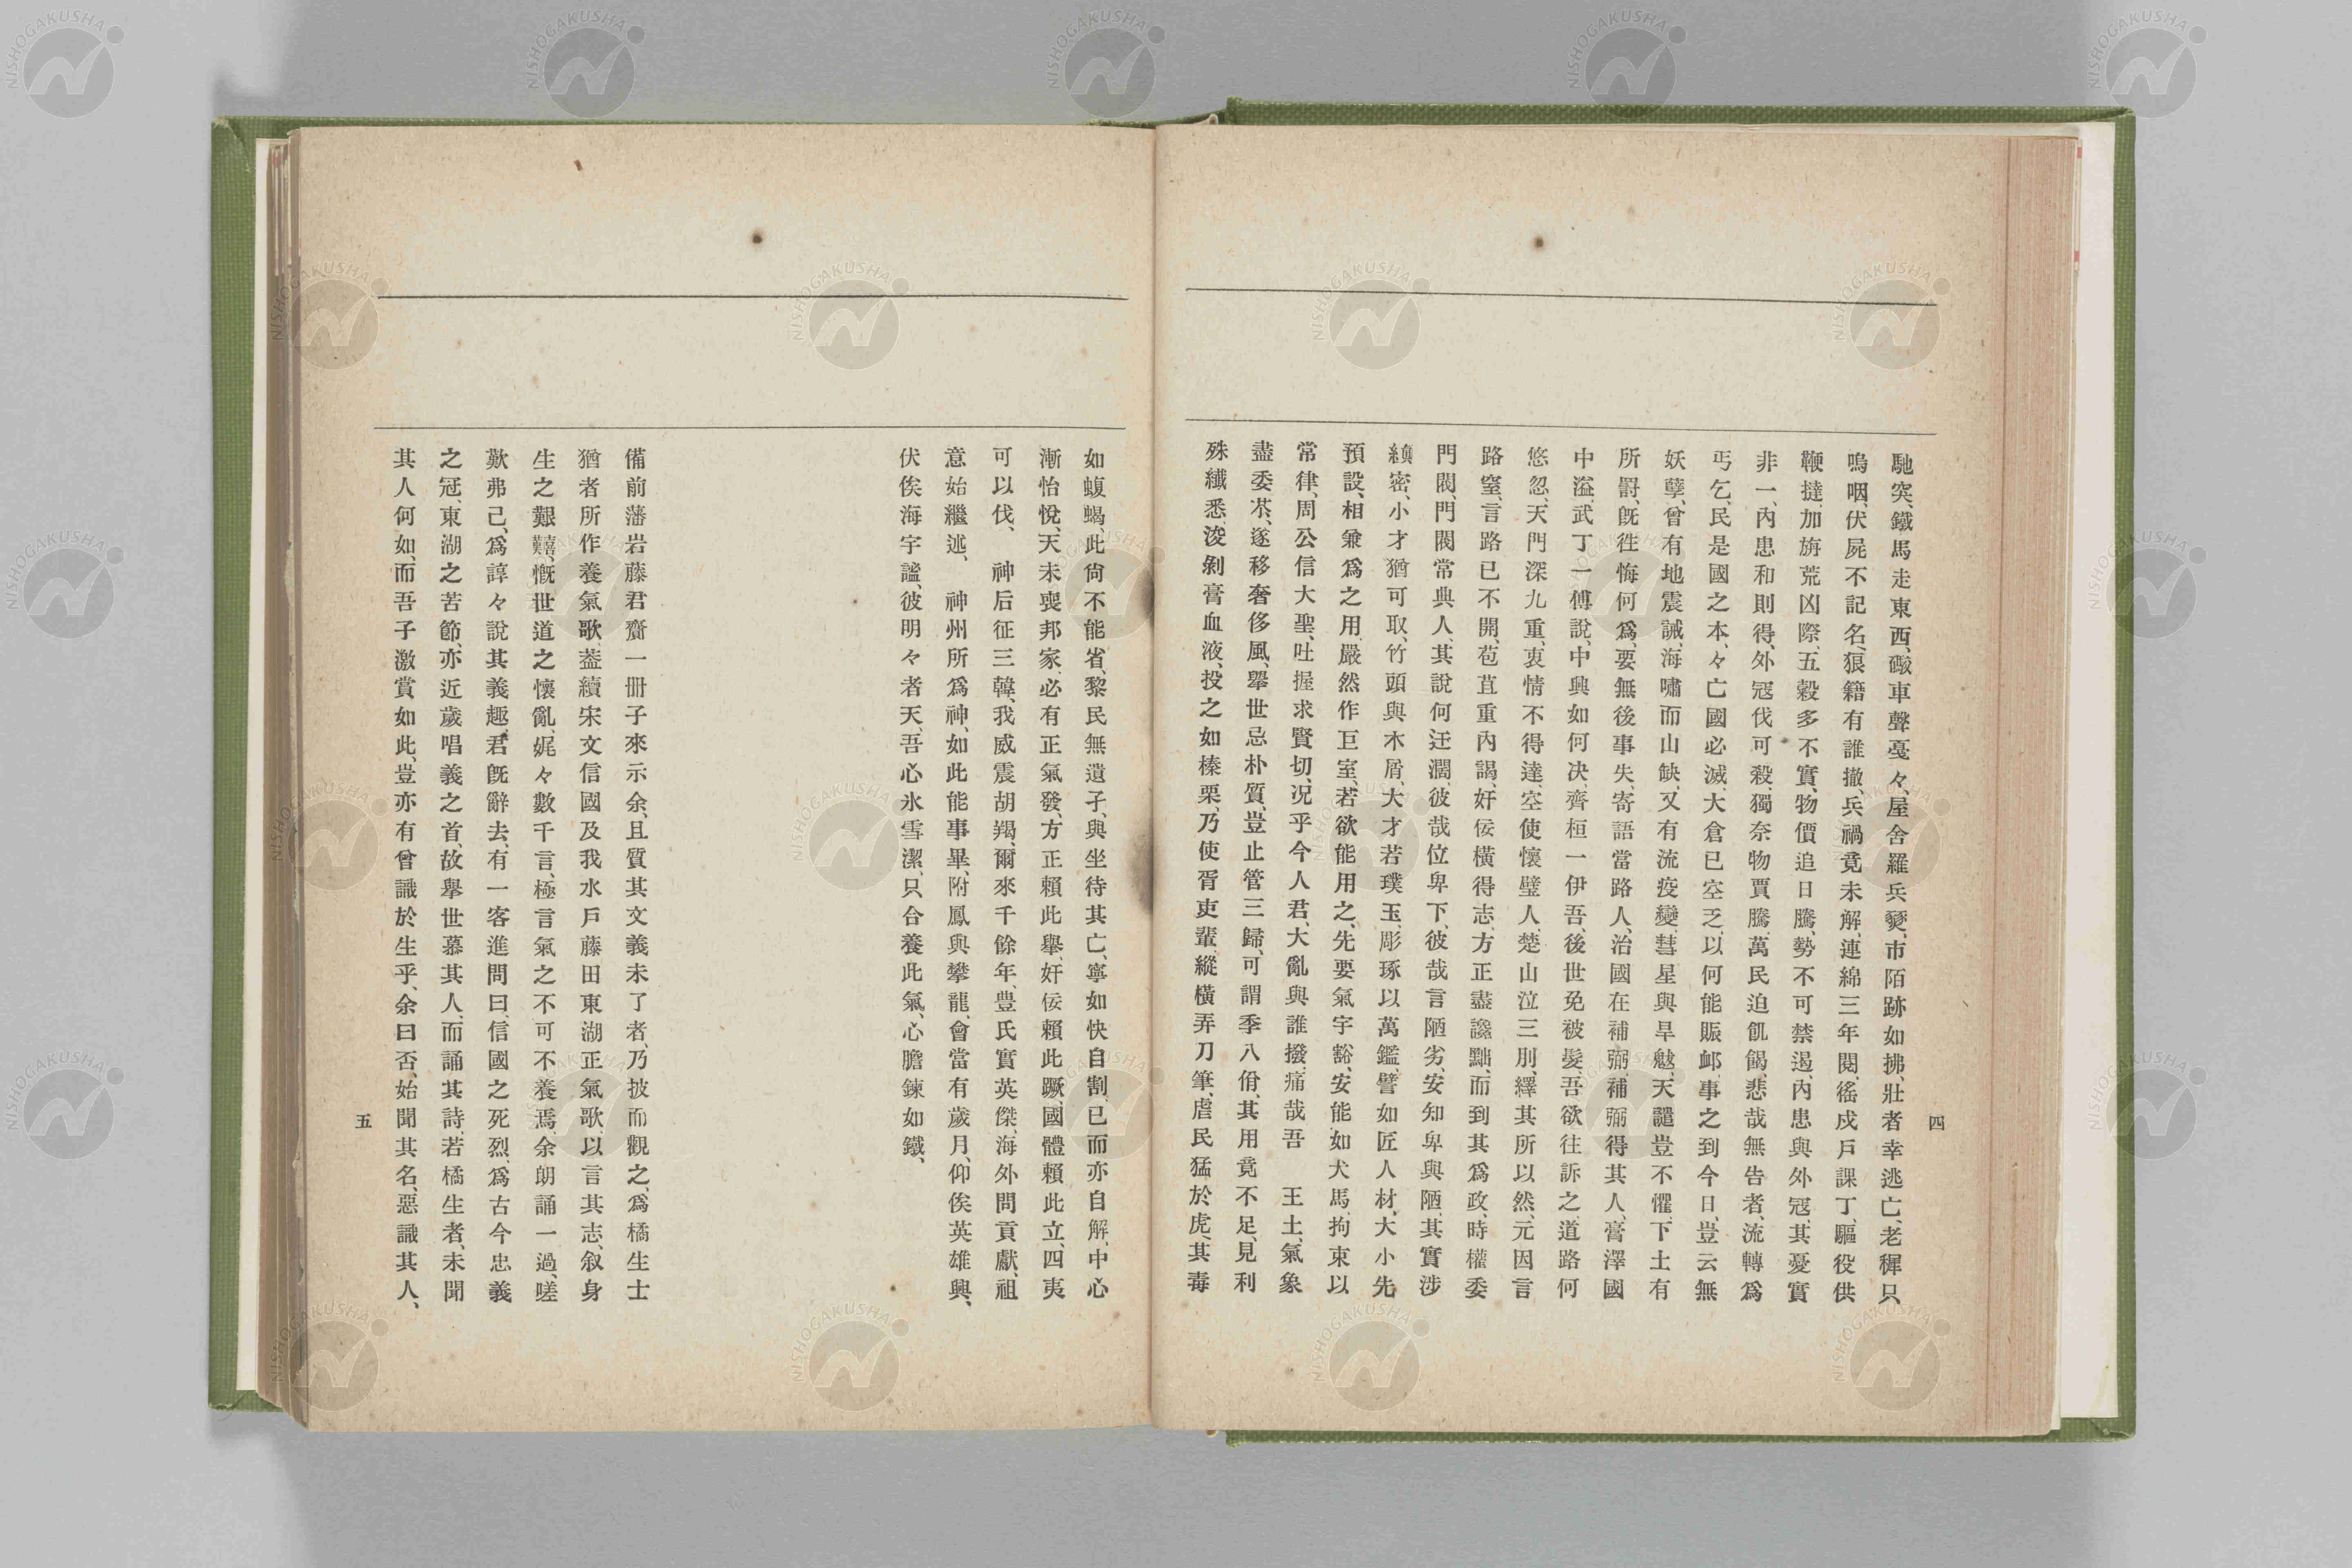 四
馳突、鐵馬走東西、礮車聲戞々、屋舍羅兵燹、市陌跡如拂、壯者幸逃亡、老穉只
嗚咽、伏屍不記名、狼籍有誰撤、兵禍竟未解、連綿三年閱、徭戍戶課丁、驅役供
鞭撻、加旃荒凶際、五穀多不實、物價追日騰、勢不可禁遏、內患與外冦、其憂實
非一、內患和則得、外冦伐可殺、獨奈物賈騰、萬民迫飢餲、悲哉無告者、流轉爲
丐乞、民是國之本、々亡國必滅、大倉已空乏、以何能賑邮、事之到今日、豈云無
妖孽、曾有地震誡、海嘯而山缺、又有流疫變、彗星與旱魃、天譴豈不懼、下土有
所罸、旣徃悔何爲、要無後事失、寄語當路人、治國在補弼、補弼得其人、膏澤國
中溢、武丁一傅說、中興如何决、齊桓一伊吾、後世免被髮、吾欲往訴之、道路何
悠忽、天門深九重、衷情不得達、空使懷璧人、楚山泣三刖、繹其所以然、元因言
路窒、言路已不開、苞苴重內謁、奸佞橫得志、方正盡讒黜、而到其爲政、時權委
門閥、門閥常典人、其說何迂濶、彼哉位卑下、彼哉言陋劣、安知卑與陋、其實涉
縝密、小才猶可取、竹頭與木屑、大才若璞玉、彫琢以萬鑑、譬如匠人材、大小先
預設、相兼爲之用、嚴然作巨室、若欲能用之、先要氣宇豁、安能如犬馬、拘束以
常律、周公信大聖、吐握求賢切、况乎今人君、大亂與誰撥、痛哉吾　王土、氣象
盡委苶、遂移奢侈風、擧世忌朴質、豈止管三歸、可謂季八佾、其用竟不足、見利
殊纎悉、浚剝膏血液、投之如榛栗、乃使胥吏輩、縱橫弄刀筆、虐民猛於虎、其毒
如蝮蝎、此尙不能省、黎民無遺孑、與坐待其亡、寧如快自割、已而亦自解、中心
漸怡悅、天未喪邦家、必有正氣發、方正賴此擧、奸佞賴此蹶、國體賴此立、四夷
可以伐、　神后征三韓、我威震胡羯、爾來千餘年、豊氏實英傑、海外問貢獻、祖
意始繼述、　神州所爲神、如此能事畢、附鳳與攀龍、會當有歲月、仰俟英雄興、
伏俟海宇謐、彼明々者天、吾心氷雪潔、只合養此氣、心膽鍊如鐵、
備前藩岩藤君齎一冊子來示余、且質其文義未了者、乃披而觀之、爲橘生士
猶者所作養氣歌、葢續宋文信國及我水戶藤田東湖正氣歌、以言其志、叙身
生之艱囏、慨世道之懷亂、娓々數千言、極言氣之不可不養焉、余朗誦一過、嗟
歎弗已、爲諄々說其義趣、君旣辭去、有一客進問曰、信國之死烈、爲古今忠義
之冠、東湖之苦節、亦近歲唱義之首、故擧世慕其人、而誦其詩、若橘生者、未聞
其人何如、而吾子激賞如此、豈亦有曾識於生乎、余曰否、始聞其名、惡識其人、
五